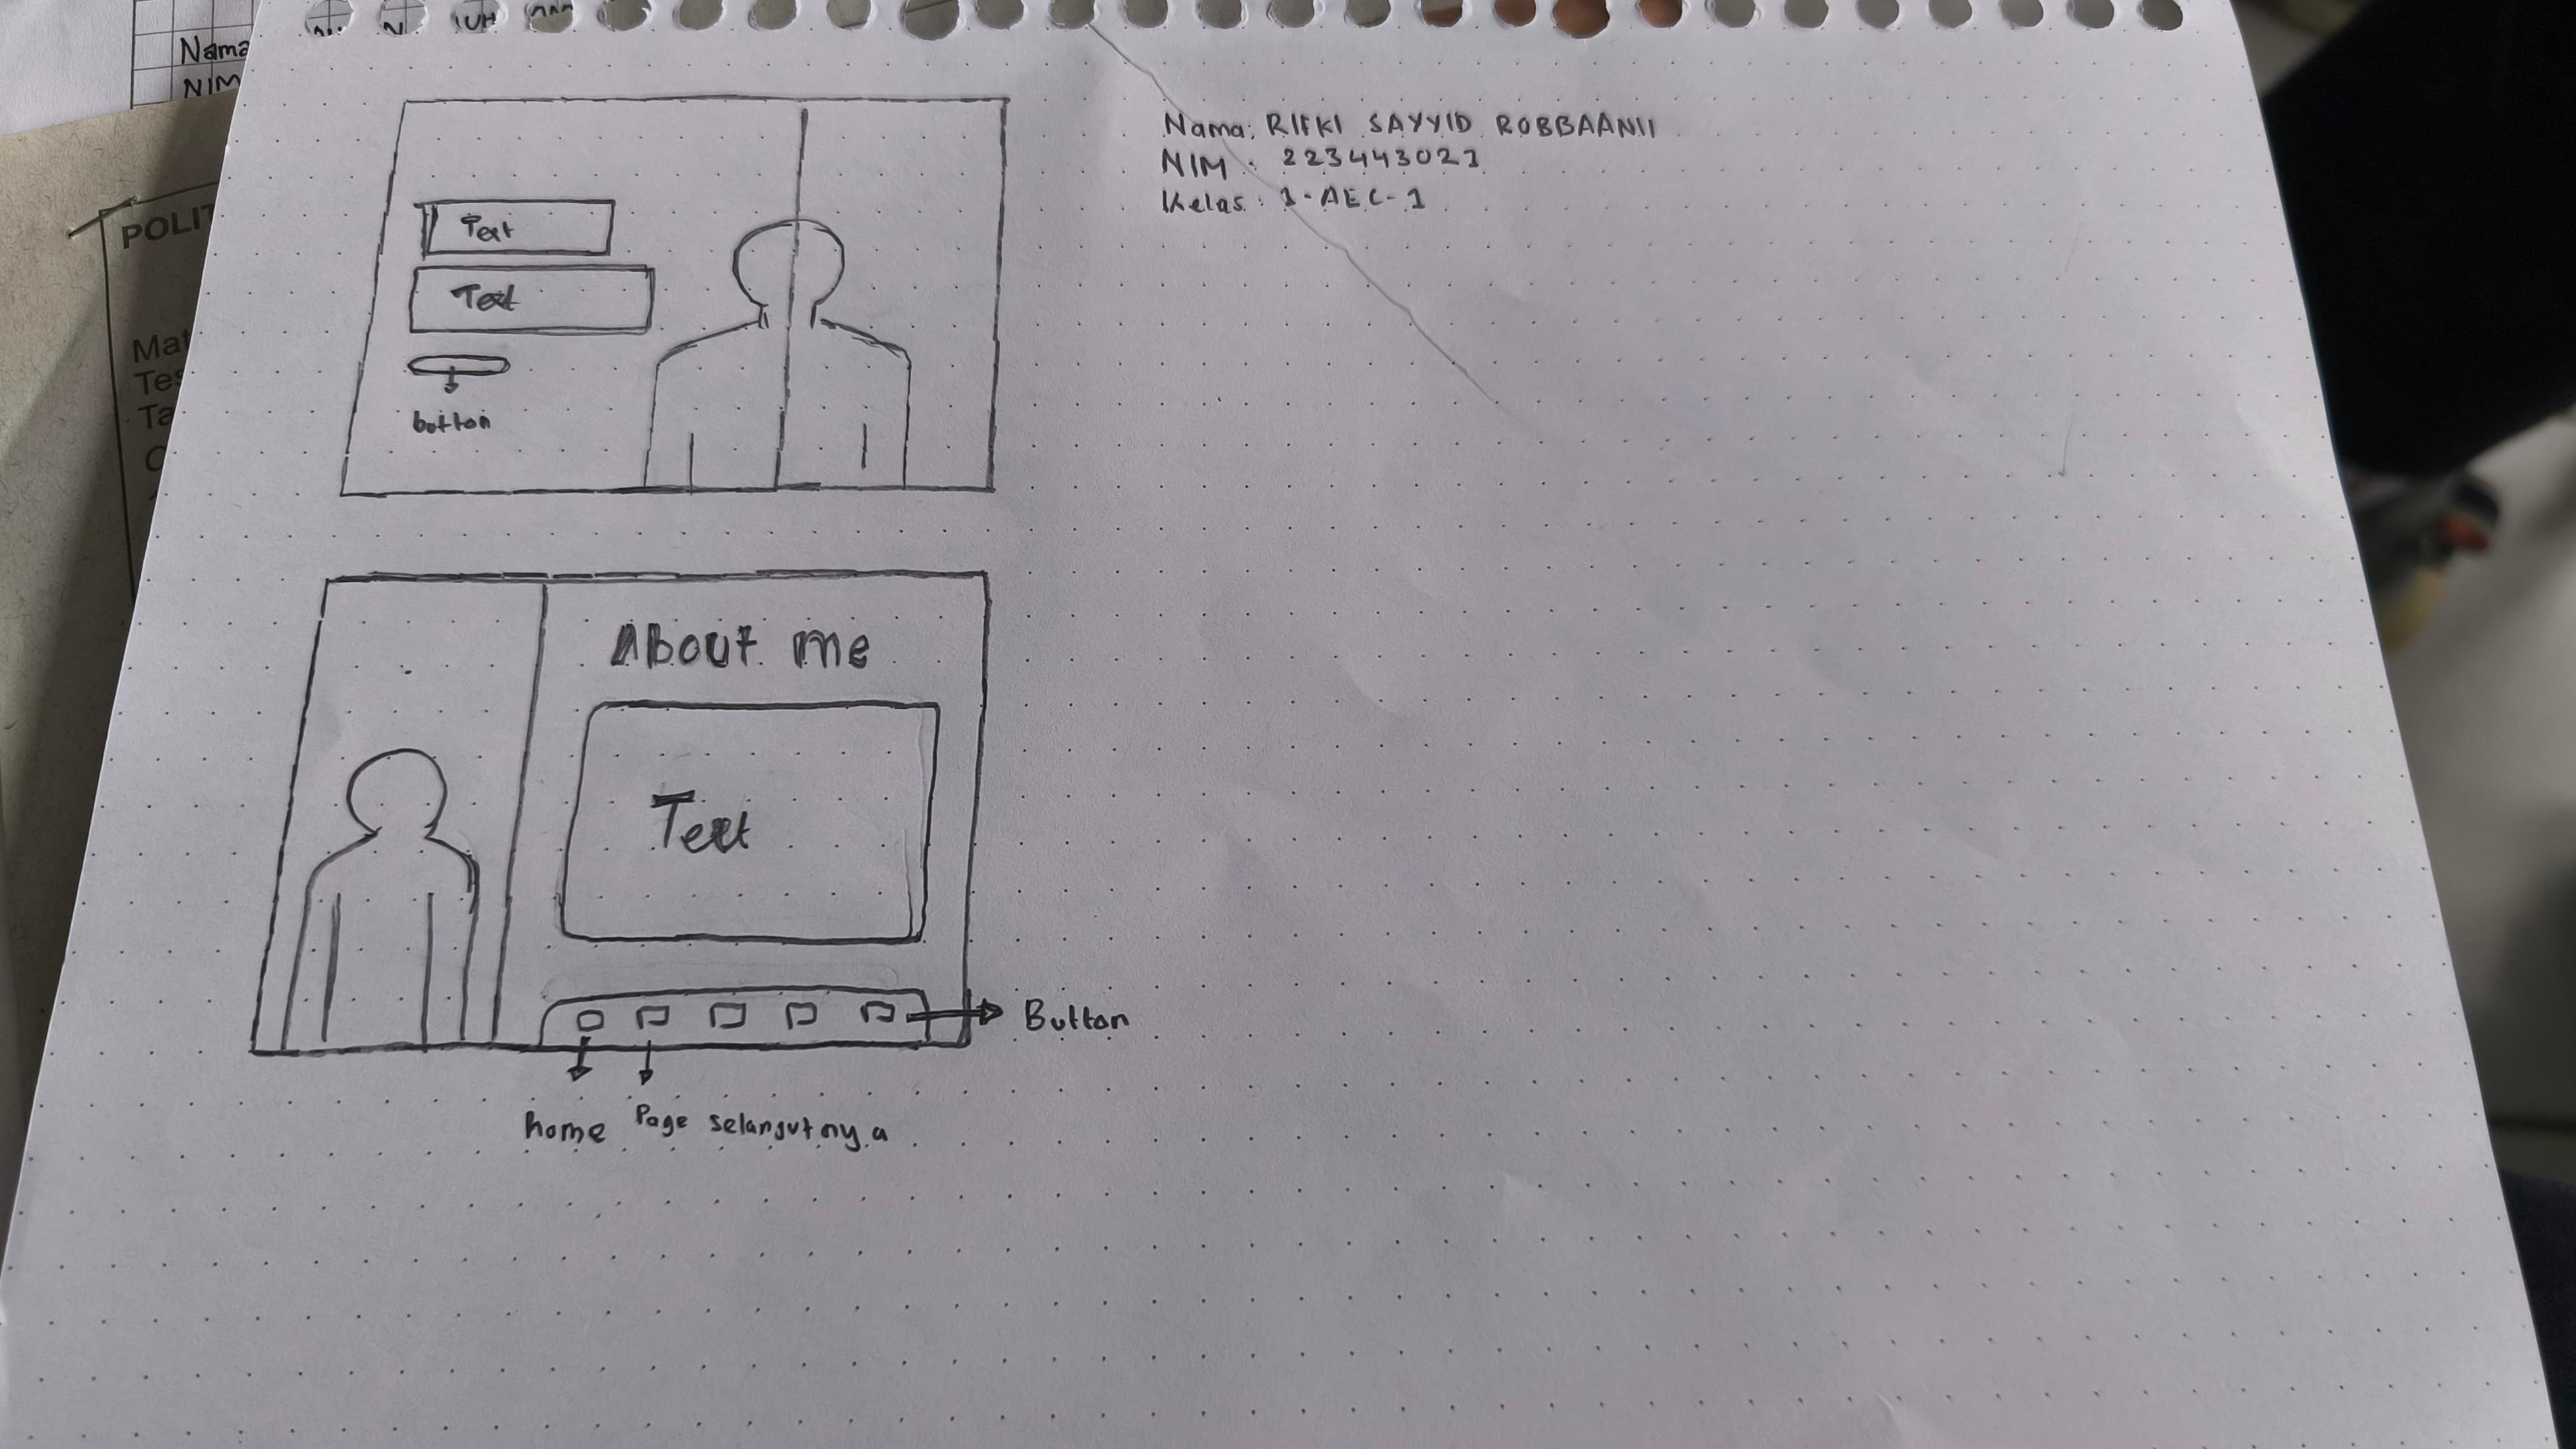 Nama
NIM
POLIT
Mat
Tes
Ta
Nama: RIFKI SAYYID ROBBAANII
NIM : 223443021
Kelas : 1-AEC-1
Text
Text
button
About me
Text
Button
home Page selanjutnya